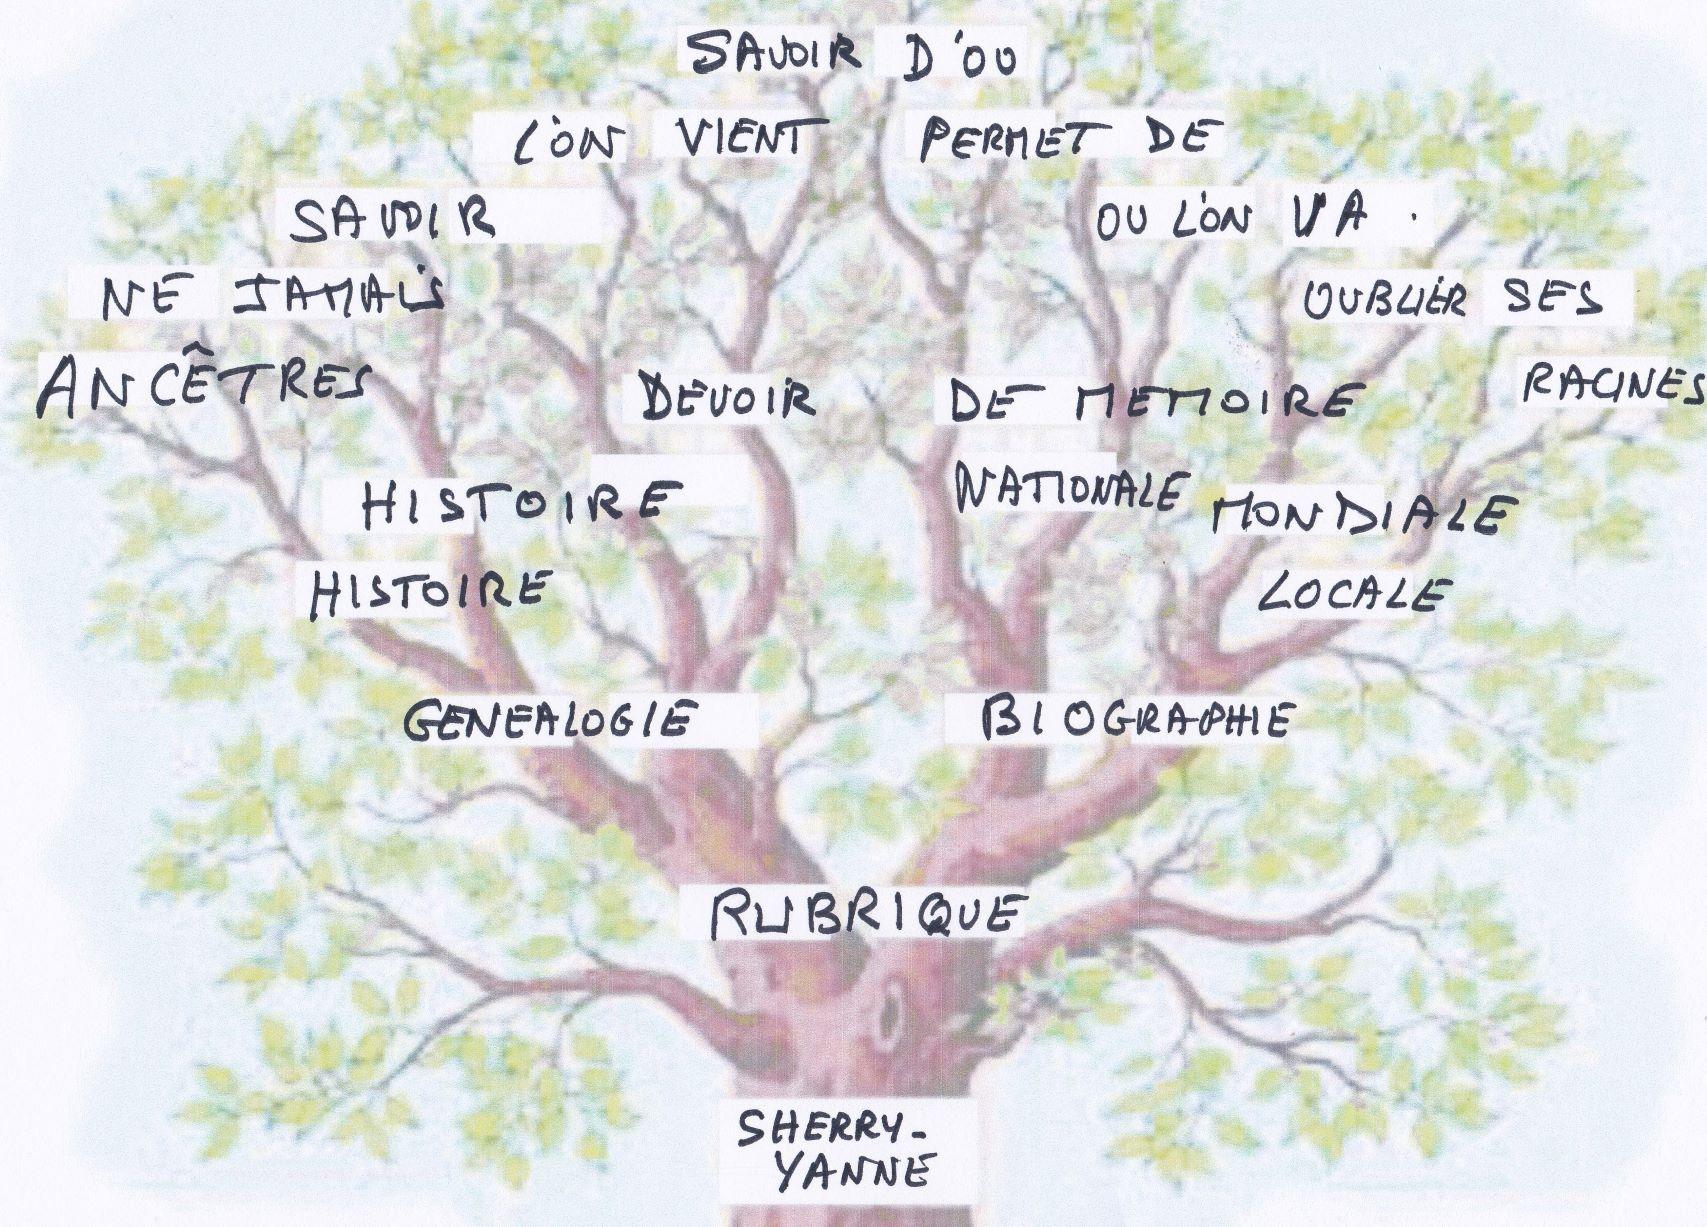 SAVOIR D'OU
L'ON VIENT PERMET DE
SAVOIR OU L'ON VA.
NE JAMAIS OUBLIER SES
ANCÊTRES RACINES
DEVOIR DE MEMOIRE
HISTOIRE NATIONALE MONDIALE
HISTOIRE LOCALE
GENEALOGIE BIOGRAPHIE
RUBRIQUE
SHERRY-
YANNE